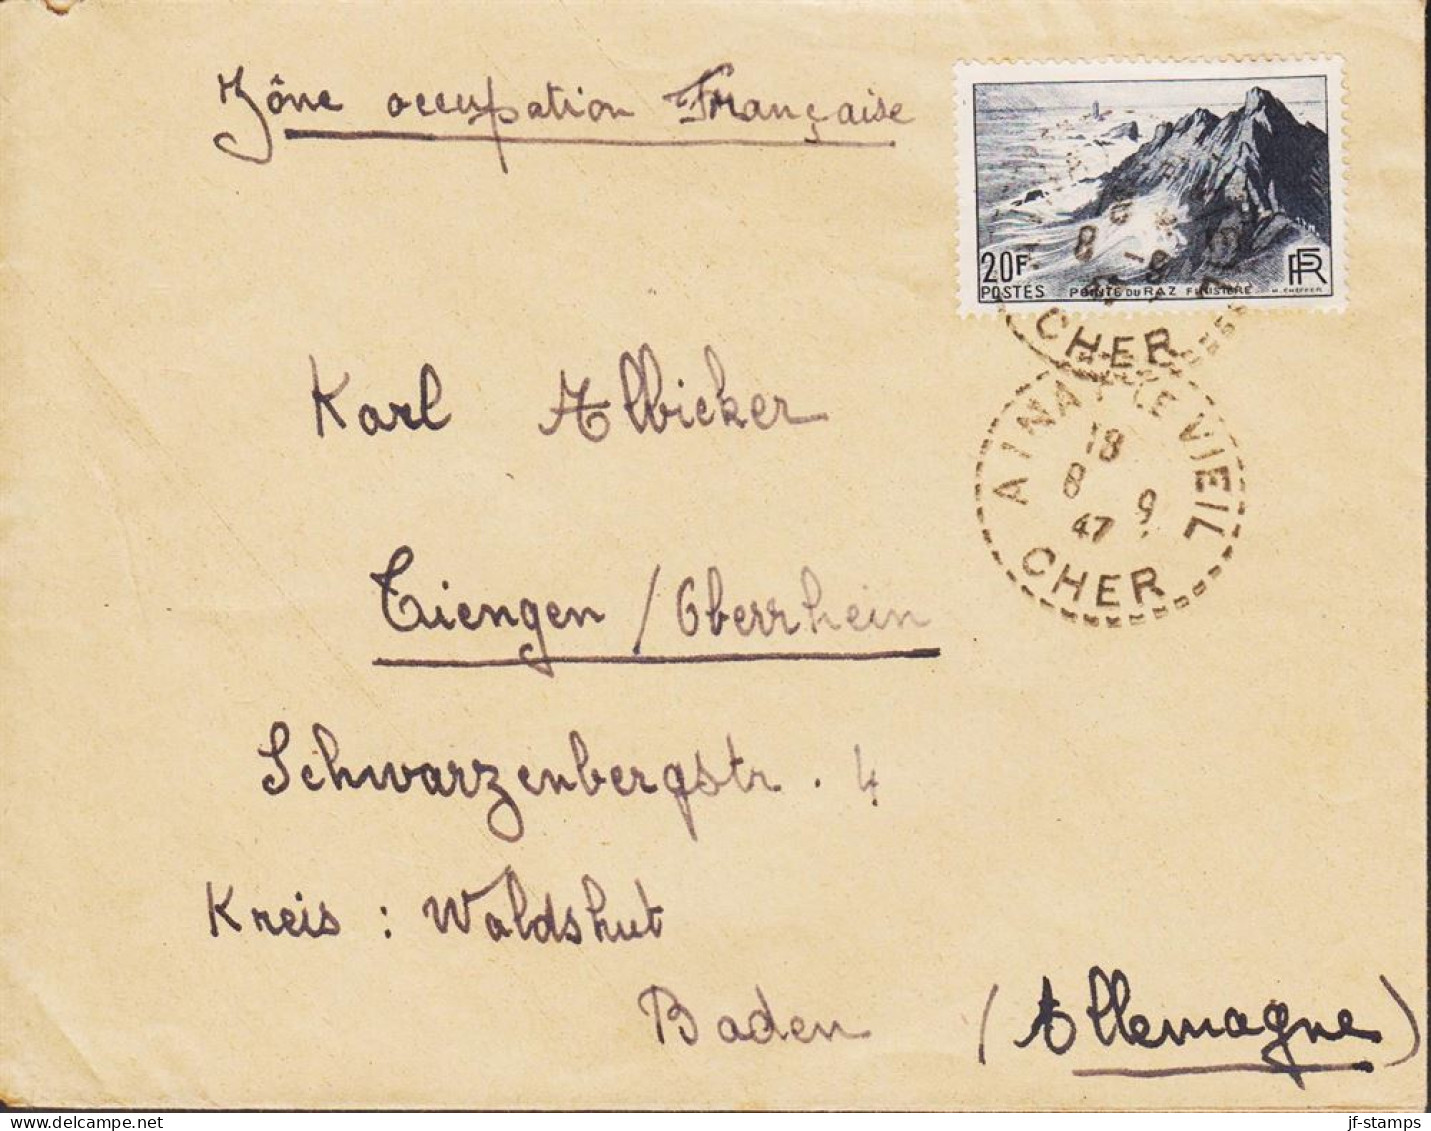 Zône occupation Française
20F
POSTES POINTE DU RAZ FINISTÈRE H. CHEFFER
RF
CHER
Karl Albicker
AINAY LE VIEIL
18
8 9
47
CHER
Tiengen / Oberrhein
Schwarzenbergstr. 4
Kreis : Waldshut
Baden (Allemagne)
jf-stamps